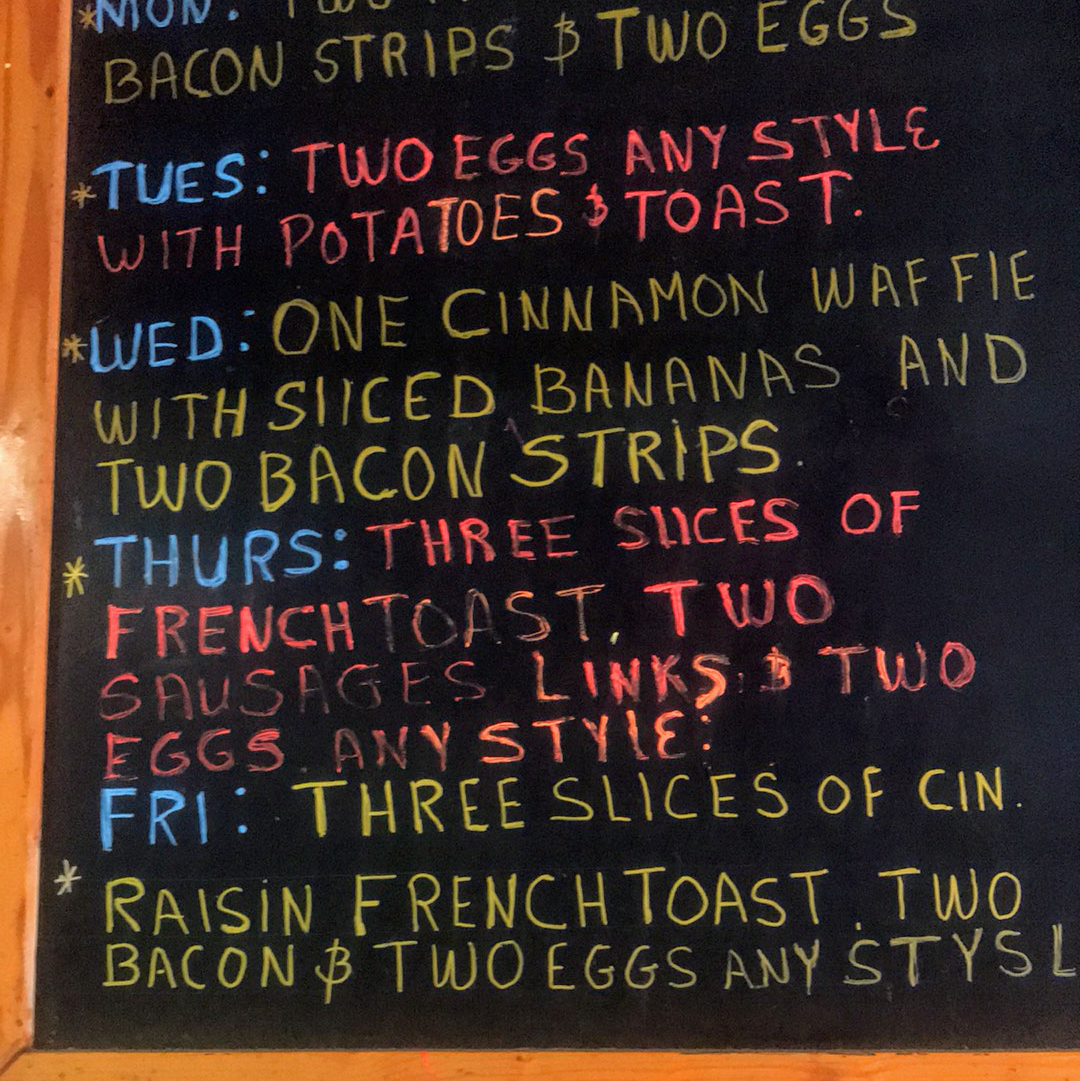 *MON: TWO
BACON STRIPS & TWO EGGS
*TUES: TWO EGGS ANY STYLE
WITH POTATOES & TOAST.
*WED: ONE CINNAMON WAFFlE
WITH SlICED BANANAS AND
TWO BACON STRIPS.
*THURS: THREE SlICES OF
FRENCH TOAST, TWO
SAUSAGES LINKS & TWO
EGGS ANY STYlE:
FRI: THREE SLICES OF CIN.
* RAISiN FRENCH TOAST. TWO
BACON & TWO EGGS ANY STYSL